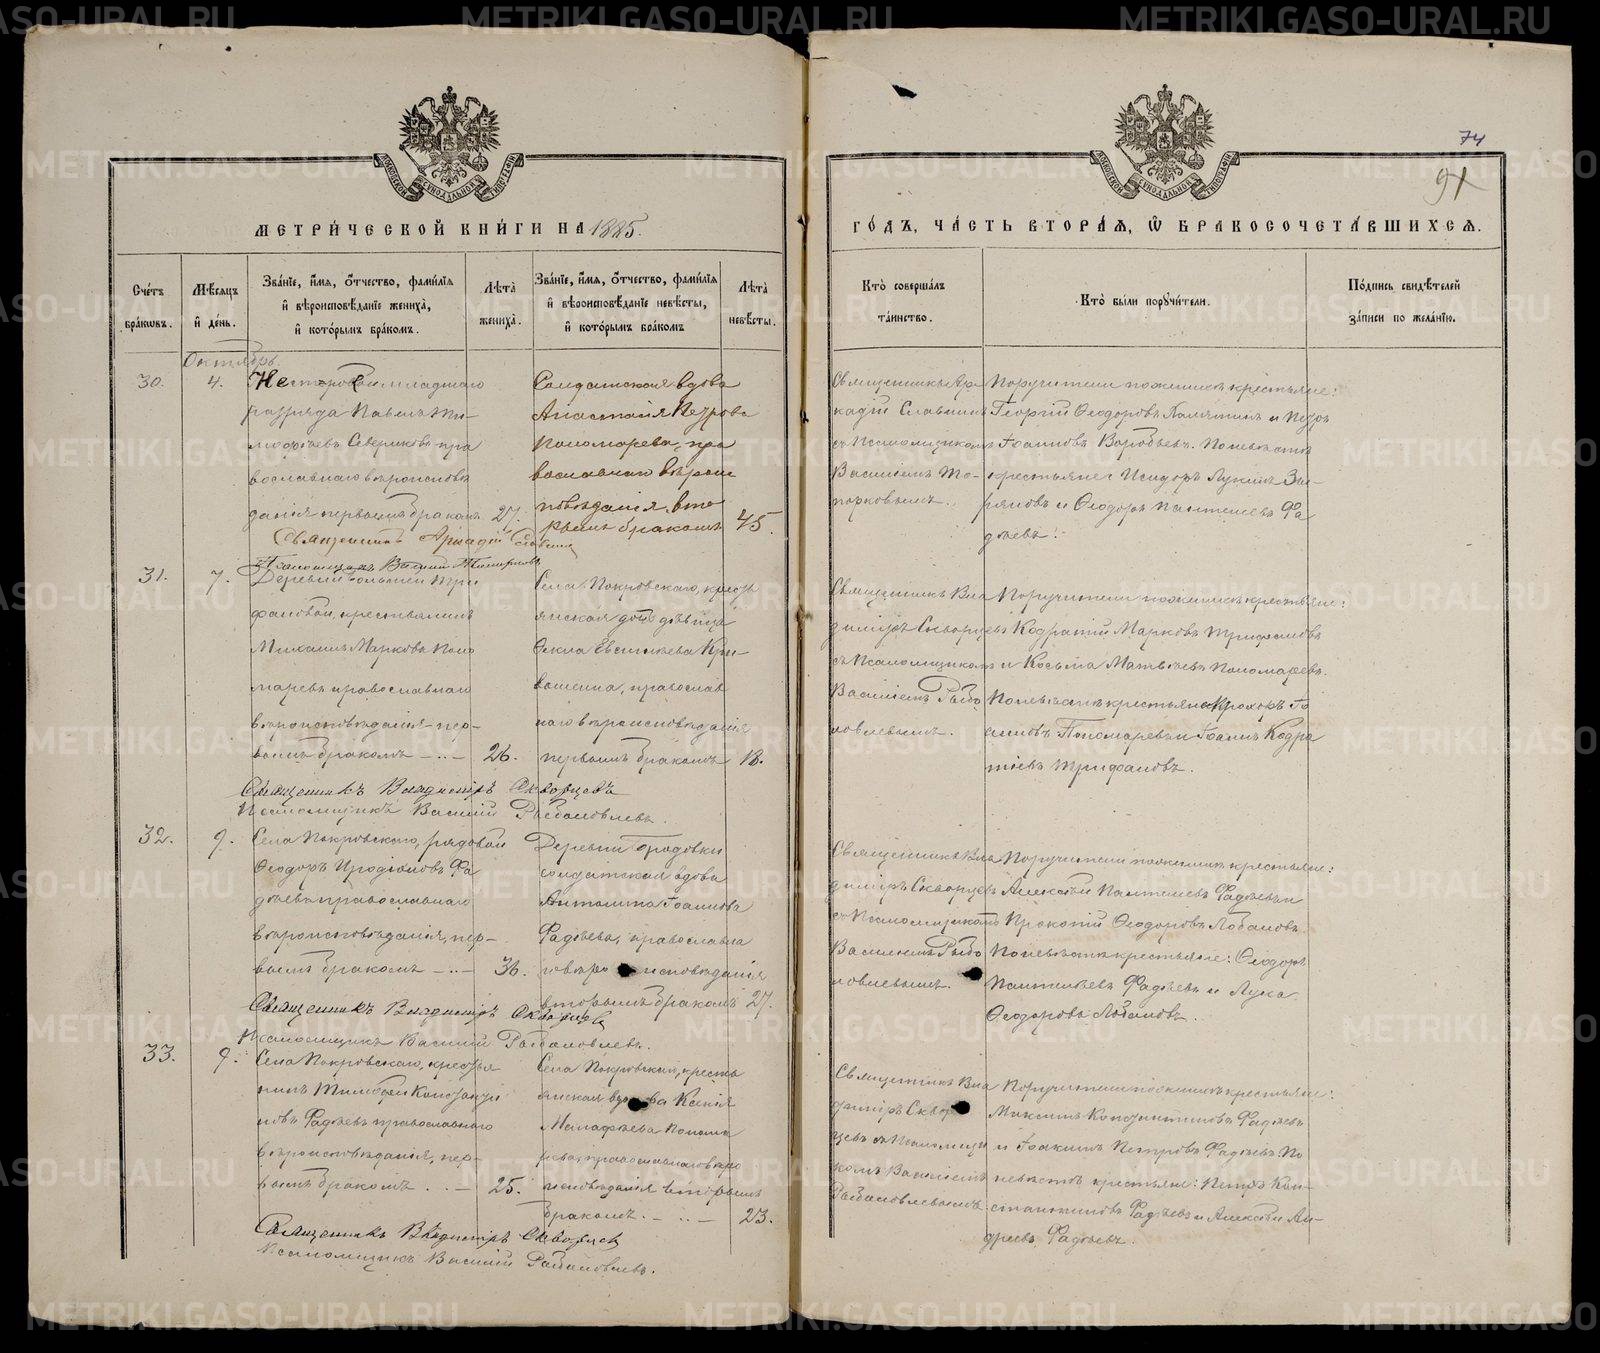 74
91
МЕТРИ́ЧЕСКОЙ КНИ́ГИ НА 1885.
ГО́ДЪ, ЧА́СТЬ ВТОРА́Я, Ѿ БРАКОСОЧЕТА́ВШИХСЯ.
Сче́тъ бра́кѡвъ.
Мѣ́сяцъ и҆ де́нь.
Зва́нїе, и҆́мя, ѻ҆́тчество, фами́лїя
и҆ вѣроисповѣ́данїе жениха̀,
и҆ кото́рымъ бра́комъ.
Лѣта̀ жениха̀.
Зва́нїе, и҆́мя, ѻ҆́тчество, фами́лїя
и҆ вѣроисповѣ́данїе невѣ́сты,
и҆ кото́рымъ бра́комъ
Лѣта̀ невѣ́сты.
Кто̀ соверша́лъ та́инство.
Кто̀ бы́ли порꙋчи́тели.
По́дпись свидѣ́телей за́писи по жела́нїю.
Октябрь
30.
4.
младшаго
разряда Павелъ Ти-
моѳѣевъ Севериковъ, пра
вославнаго вѣроисповѣ
данія первымъ бракомъ
27.
Солдатская вдова
Анастасія Петрова
Пономарева, пра
вославнаго вѣроис
повѣданія, вто
рымъ бракомъ
45.
Священникъ Ар-
кадій Славнинъ
съ Псаломщикомъ
Василіемъ То-
порковымъ.
Поручители по женихѣ крестьяне:
Георгій Ѳеодоровъ Камятинъ и Петръ
Іоанновъ Воробьевъ. По невѣстѣ
крестьяне: Исидоръ Лукинъ Зы-
ряновъ и Ѳеодоръ Пантелеевъ Фа
дѣевъ.
Священникъ Аркадій Славнинъ
Псаломщикъ Василій Топорковъ
31.
7.
Деревни Большей Три
фановой, крестьянинъ
Михаилъ Марковъ Поно
маревъ православнаго
вѣроисповѣданія пер-
вымъ бракомъ
26.
Села Покровскаго, кресть
янская дочь дѣвица
Ѳекла Евсигнѣева Кри-
вошеина, православ
наго вѣроисповѣданія
первымъ бракомъ
18.
Священникъ Вла
диміръ Скворцевъ
съ Псаломщикомъ
Василіемъ Рыбо
ловлевымъ.
Поручители по женихѣ крестьяне:
Кодратій Марковъ Трифановъ
и Косьма Матвѣевъ Пономаревъ.
По невѣстѣ крестьяне Прохоръ Іо
анновъ Пономаревъ и Іоаннъ Кодра
тіевъ Трифановъ.
Священникъ Владиміръ Скворцевъ
Псаломщикъ Василій Рыболовлевъ.
32.
9.
Села Покровскаго, рядовой
Ѳеодоръ Иродіоновъ Фа
дѣевъ православнаго
вѣроисповѣданія, пер-
вымъ бракомъ
36.
Деревни Бродовки
солдатская вдова
Антонина Іоаннова
Фадѣева, православна
го вѣроисповѣданія
вторымъ бракомъ
27.
Священникъ Вла
диміръ Скворцевъ
съ Псаломщикомъ
Василіемъ Рыбо
ловлевымъ.
Поручители по женихѣ крестьяне:
Алексѣй Пантелеевъ Фадѣевъ и
Прокопій Ѳеодоровъ Лобановъ.
По невѣстѣ крестьяне: Ѳеодоръ
Пантелѣевъ Фадѣевъ и Лука
Ѳеодоровъ Лобановъ.
Священникъ Владиміръ Скворцевъ
Псаломщикъ Василій Рыболовлевъ.
33.
9.
Села Покровскаго, крестья
нинъ Тимоѳей Константи
новъ Фадѣевъ православнаго
вѣроисповѣданія, пер-
вымъ бракомъ
25.
Села Покровскаго, кресть
янская вдова Ксенія
Малафѣева Понома
рева, православнаго вѣро
исповѣданія вторымъ
бракомъ
23.
Священникъ Вла
диміръ Сквор
цевъ съ Псаломщи
комъ Василіемъ
Рыболовлевымъ.
Поручители по женихѣ крестьяне:
Максимъ Константиновъ Фадѣевъ
и Іоакимъ Петровъ Фадѣевъ По
невѣстѣ крестьяне: Петръ Кон-
стантиновъ Фадѣевъ и Алексѣй Ан-
дреевъ Фадѣевъ.
Священникъ Владиміръ Скворцев
Псаломщикъ Василій Рыболовлевъ.
METRIKI.GASO-URAL.RU